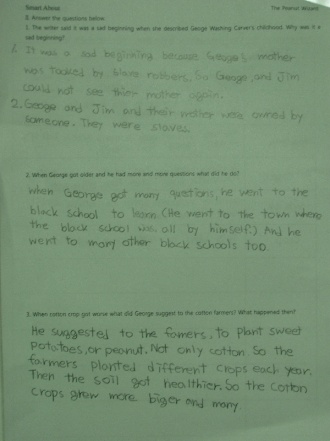 Smart About
The Peanut Wizard
B. Answer the questions below.
1. The writer said it was a sad beginning when she described George Washing Carver's childhood. Why was it a
sad beginning?
1. It was a sad beginning because George's mother
was touced by slave robbers. So George, and Jim
could not see thier mother again.
2. George and Jim and their mother were owned by
someone. They were slaves.
2. When George got older and he had more and more questions what did he do?
when George got many questions, he went to the
black school to learn. (He went to the town where
the black school was all by himself.) And he
went to many other black schools too.
3. When cotton crop got worse what did George suggest to the cotton farmers? What happened then?
He suggested to the famers, to plant sweet
potatoes, or peanut. Not only cotton. So the
farmers planted different crops each year.
Then the soil got healthier. So the cotton
crops grew more biger and many.